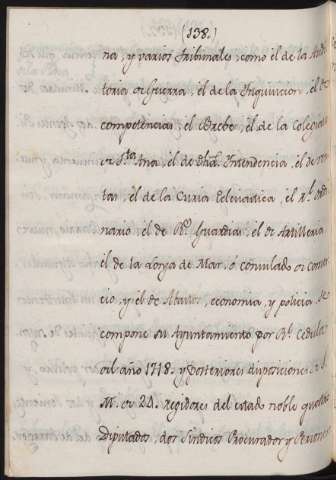 (138.)
na, y varios tribunales, como él de la Audi
toria de Guerra, él de la Inquisicion, él de
competencias, él Breve, él de la Colegiata
de Sta. Ana, él de dha. Intendencia, él de ren
tas, él de la Curia Eclesiastica, él Rl. ordi
nario, él de Rs. Guardias, él de Artilleria
él de la Lonja de Mar, ó consulado de comer
cio, y él de Abastos, economia, y policia. Se
compone su Ayuntamiento por Rl. Cedula
del año 1718. y Posteriores disposiciones de S.
M. de 24. regidores del estado noble quatro
Diputados, dos Sindicos Procurador y Personer